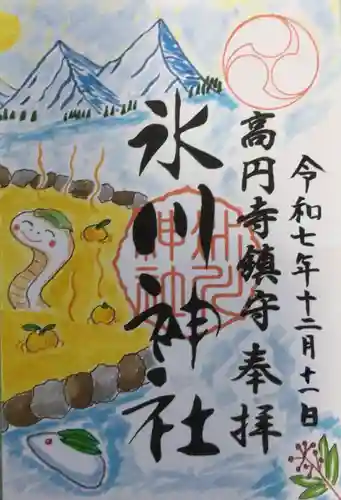 令和七年十二月十一日
高円寺鎮守 奉拝
氷川神社
氷川神社